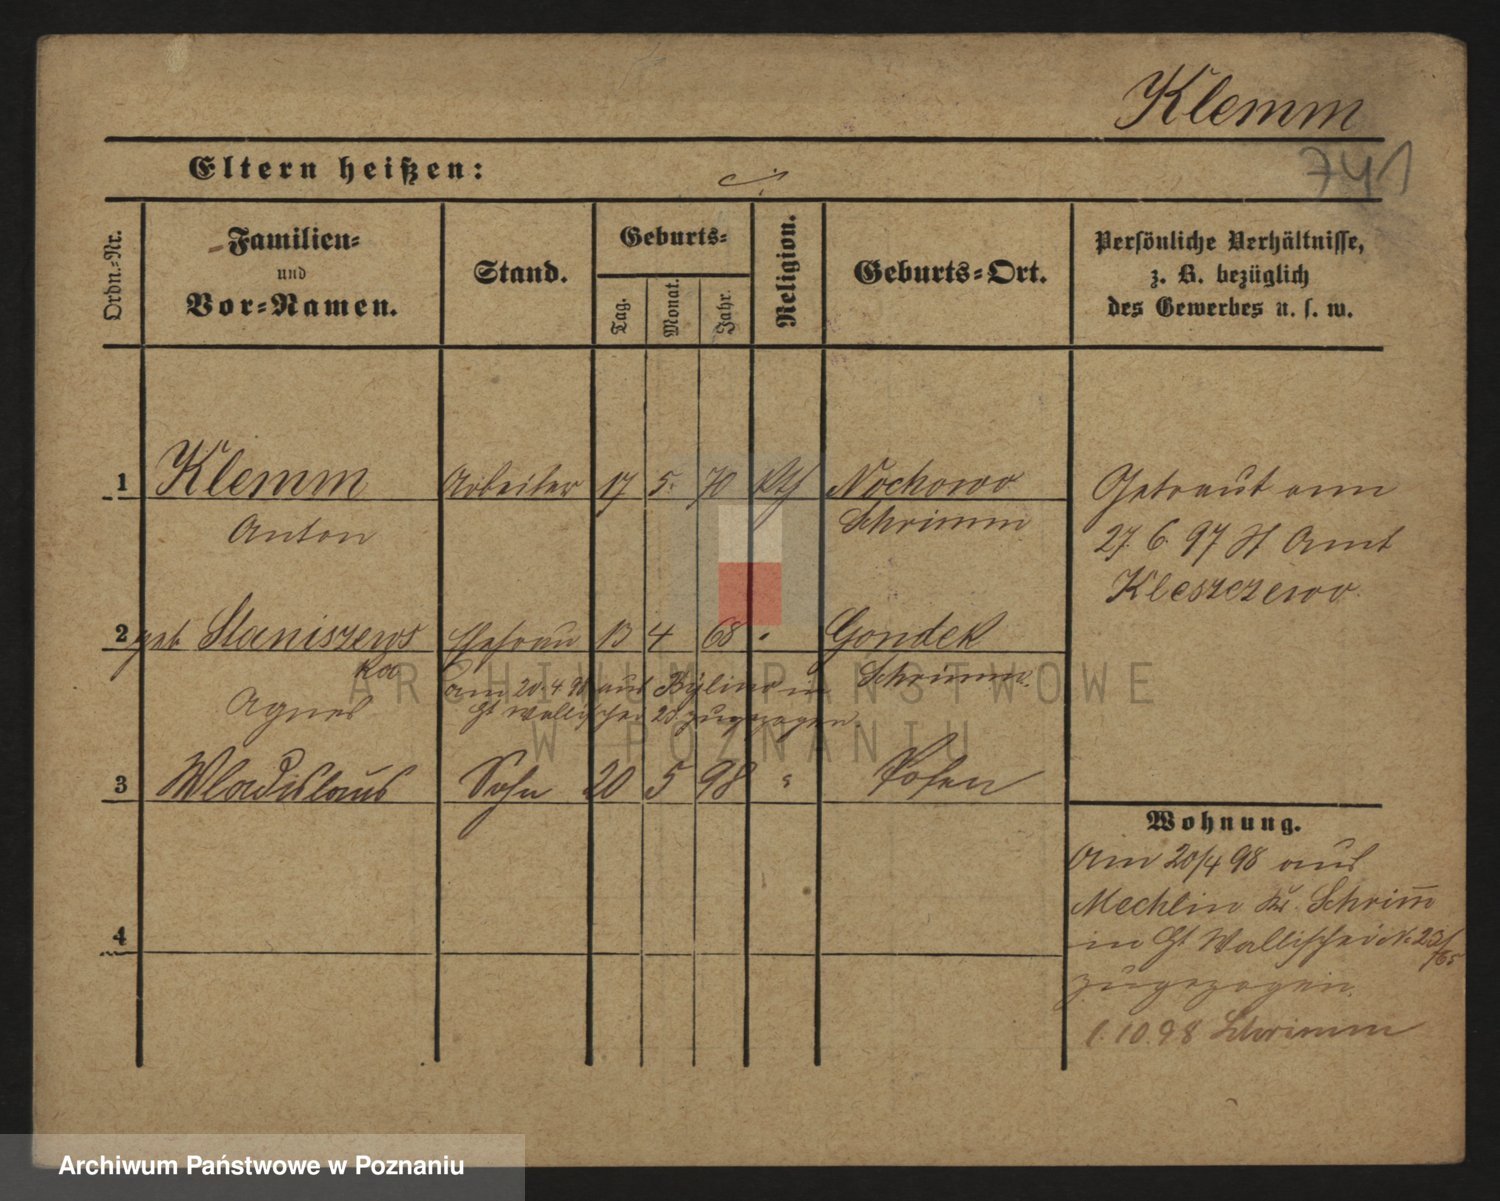 Klemm
741
Eltern heißen:
Ordn.-Nr.
Familien-
und
Vor-Namen.
Stand.
Geburts-
Tag.
Monat.
Jahr.
Religion.
Geburts-Ort.
Persönliche Verhältnisse,
z. B. bezüglich
des Gewerbes u. s. w.
1 Klemm Arbeiter 17 5. 70 kth Nochowo
Anton Schrimm
Getraut am
27. 6. 97 St Amt
Kleszczewo
2 geb Staniszews Ehefrau 13 4 68 " Gondek
ka Schrimm
am 20.4.98 aus Bylino in
Agnes Gt Wallischei 23. zugezogen
3 Wladislaus Sohn 20 5 98 " Posen
4
Wohnung.
Am 20/4 98 aus
Mechlin Kr. Schrim̄
in Gt Wallischei N. 23/
65
zugezogen.
1.10.98 Schrimm
ARCHIWUM PAŃSTWOWE
W POZNANIU
Archiwum Państwowe w Poznaniu